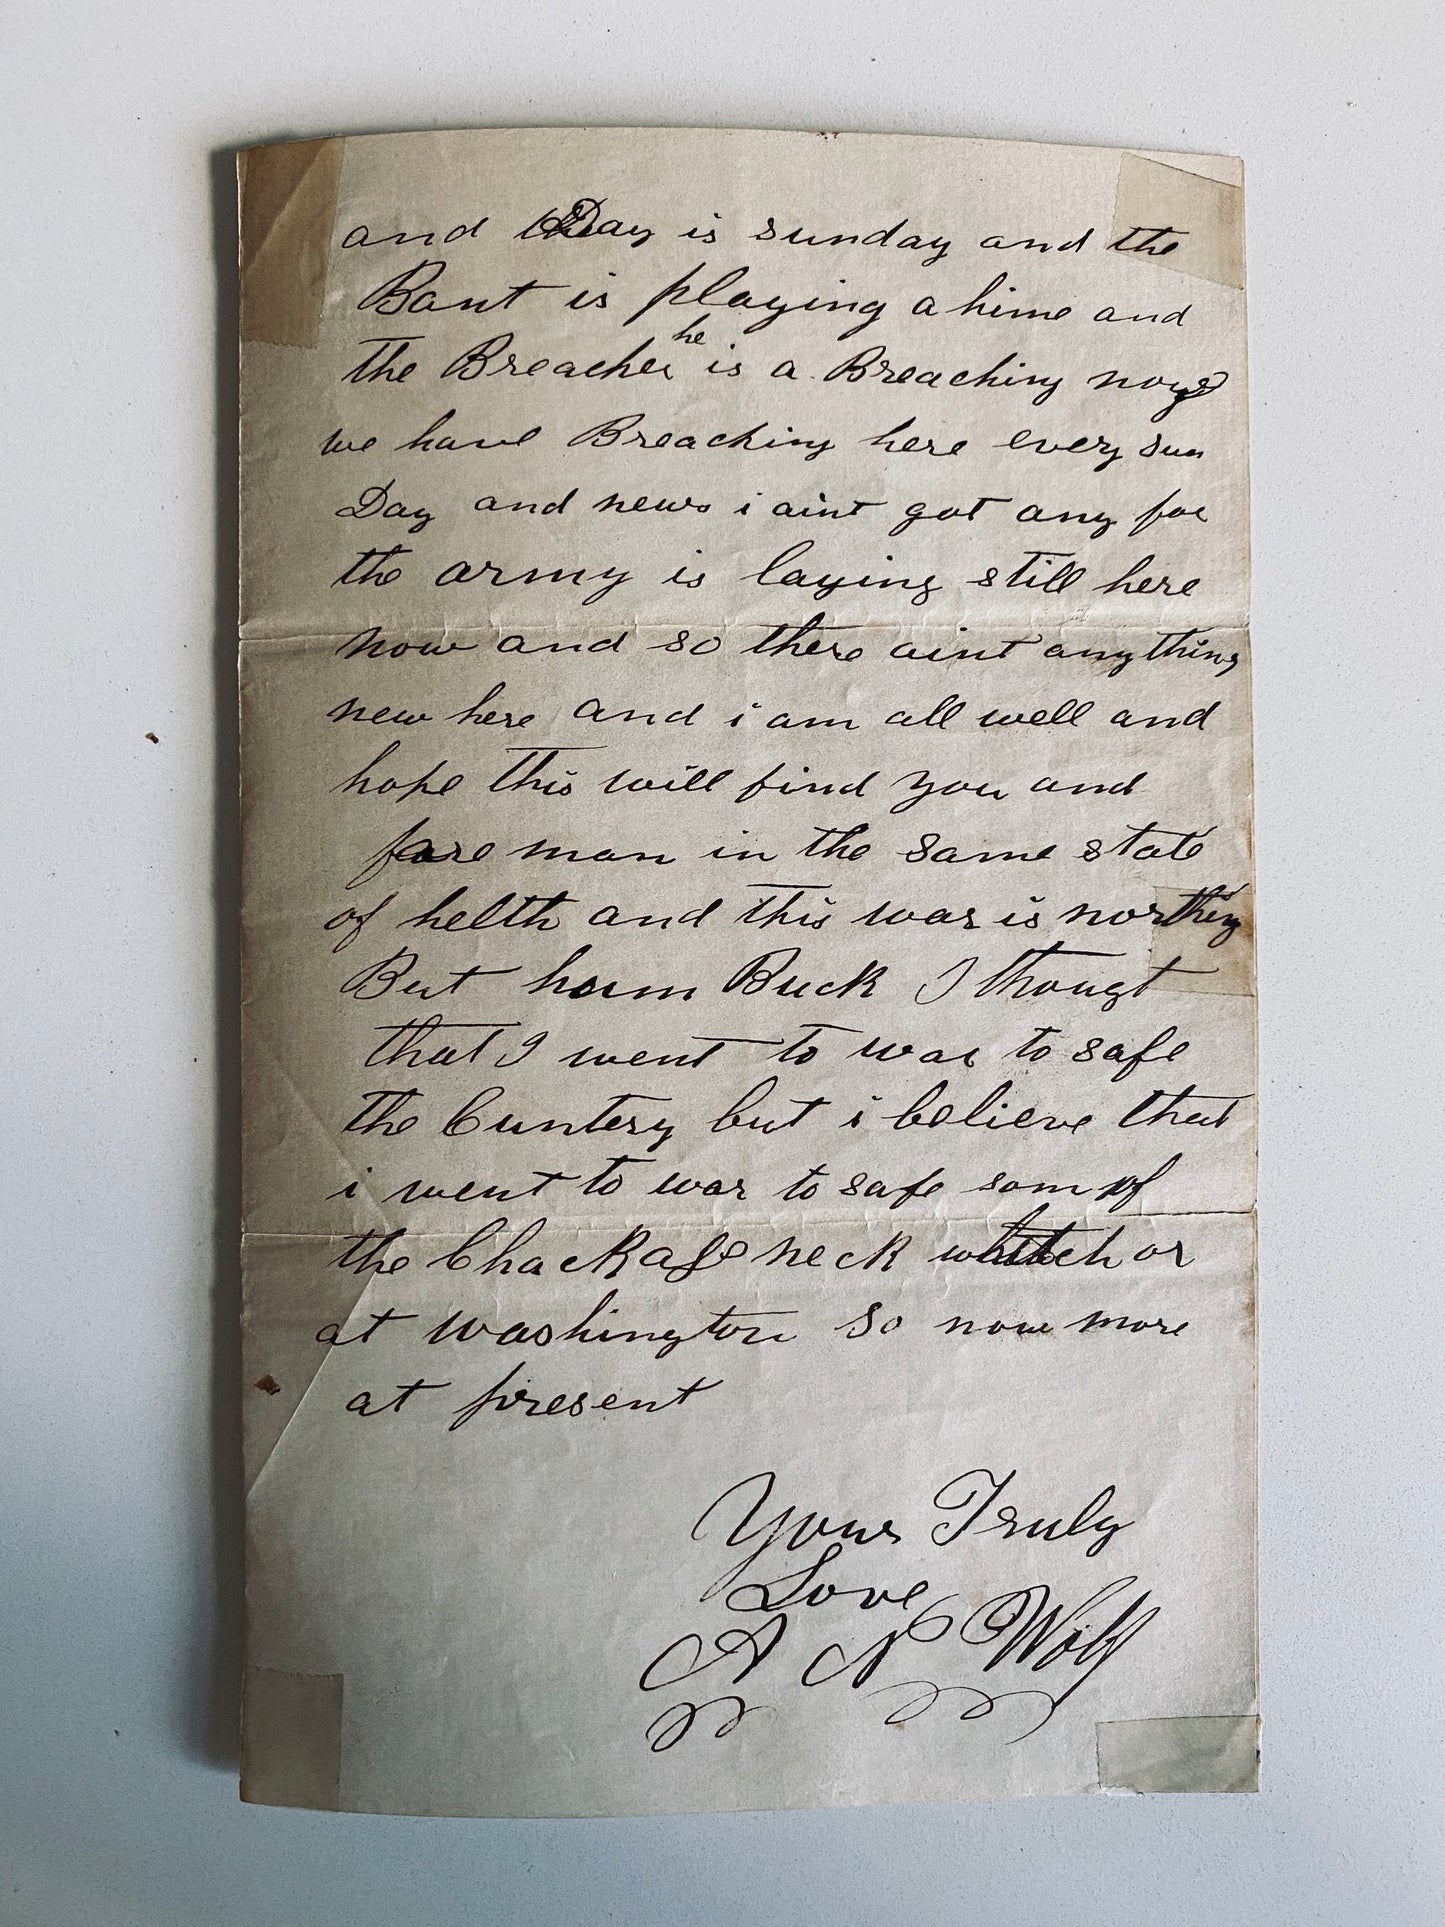 and Day is sunday and the
Bant is playing a hime and
the Breacher he is a Breaching
we have Breaching here every sun
Day and news i aint got any for
the army is laying still here
now and so there aint anything
new here and i am all well and
hope this will find you and
fore man in the same state
of helth and this war is northing
But hum Buck I thougt
that I went to war to safe
the Cuntery but i believe that
i went to war to safe som of
the Chackafs neck which or
at washington so now more
at present
Yours Truly
Love
A N Wolf